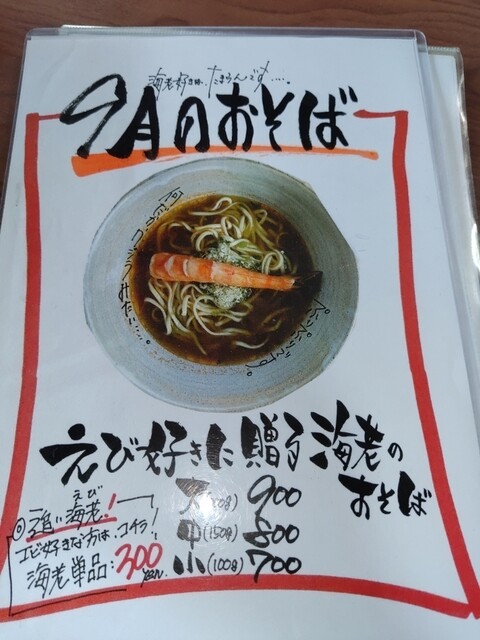 海老好きは、たまらんです…。
9月のおそば
えび好きに贈る海老の
おそば
大 900
中(150g) 800
小(100g) 700
◎追い海老!
えび
エビ好きな方は、コイツ!
海老単品:300
yen.